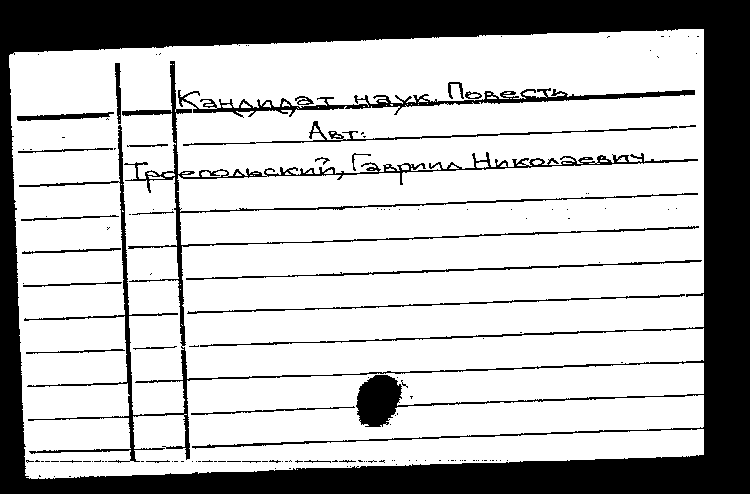 Кандидат наук. Повесть.
Авт.:
Троепольский, Гавриил Николаевич.